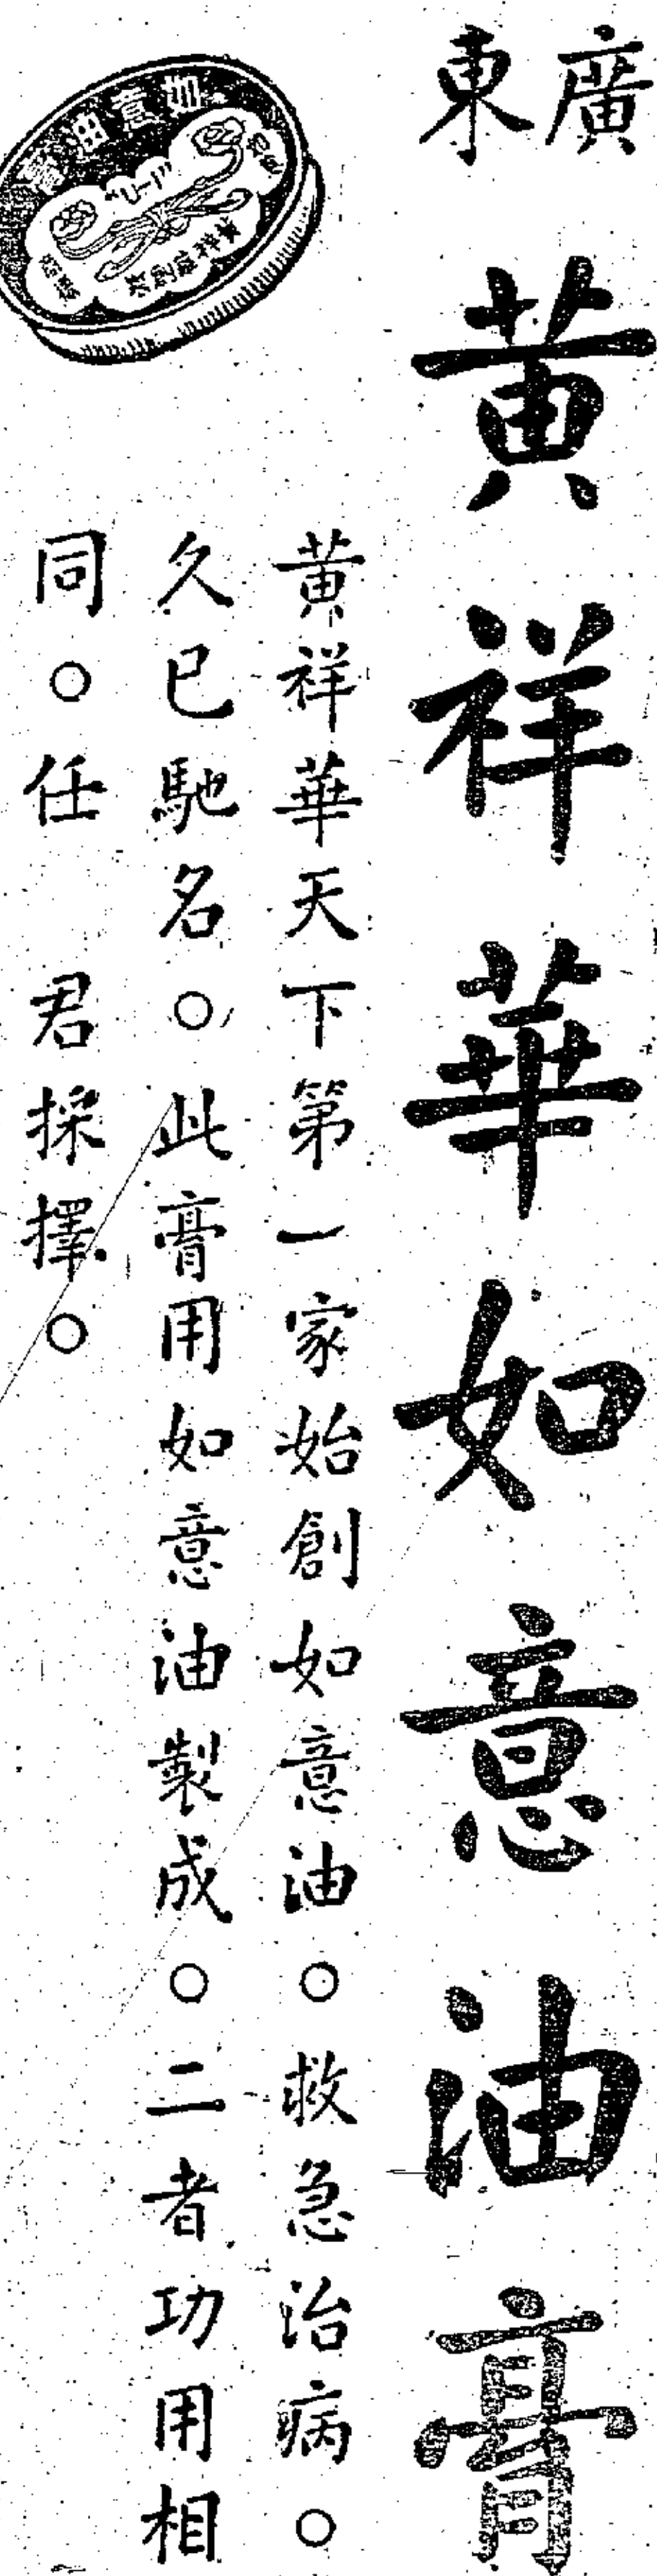 廣東
黃祥華如意油膏
黃祥華天下第一家始創如意油。救急治病。
久已馳名。此膏用如意油製成。二者功用相
同。任　君採擇。
如意油膏